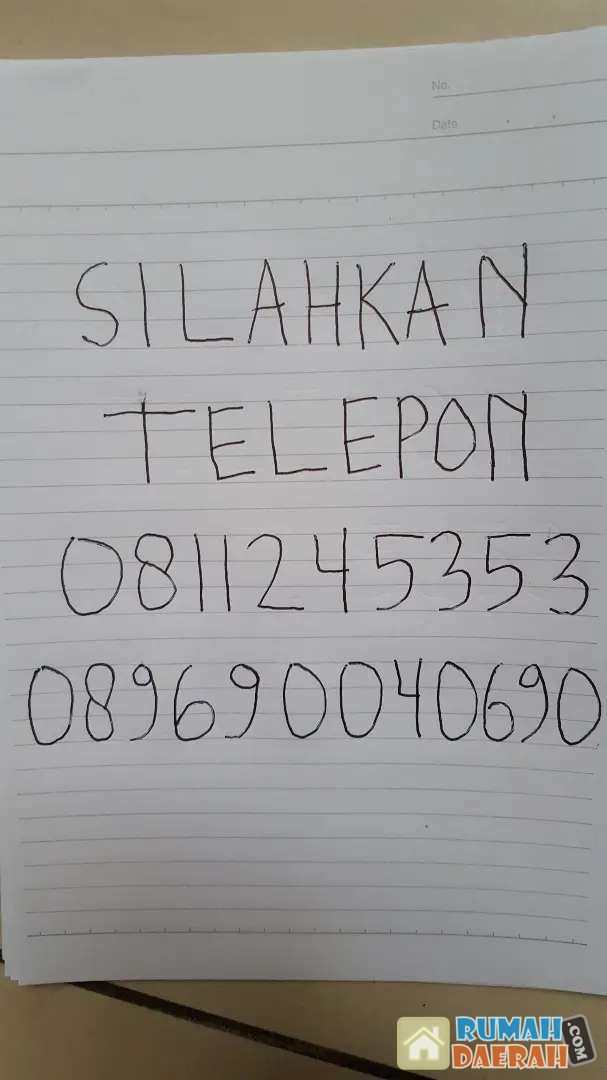 No.
Date
SILAHKAN
TELEPON
0811245353
089690040690
RUMAH
DAERAH
.COM